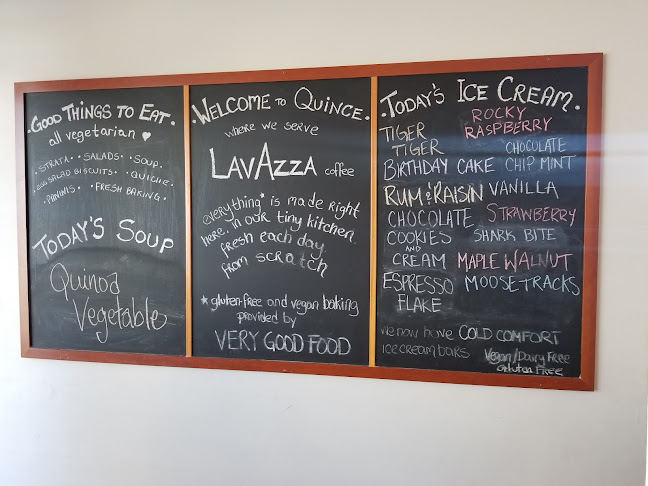 ·GOOD THINGS TO EAT·
all vegetarian ♥
·STRATA· ·SALADS· ·SOUP·
·EGG SALAD BISCUITS· ·QUICHE·
·PANINIS· ·FRESH BAKING·
TODAY'S SOUP
Quinoa
Vegetable
·WELCOME TO QUINCE·
where we serve
LAVAZZA coffee
everything* is made right
here in our tiny kitchen
fresh each day
from scratch
*gluten-free and vegan baking
provided by
VERY GOOD FOOD
·TODAY'S ICE CREAM·
TIGER
TIGER
BIRTHDAY CAKE
RUM & RAISIN
CHOCOLATE
COOKIES
AND
CREAM
ESPRESSO
FLAKE
ROCKY
RASPBERRY
CHOCOLATE
CHIP MINT
VANILLA
STRAWBERRY
SHARK BITE
MAPLE WALNUT
MOOSETRACKS
We now have COLD COMFORT
ice cream bars
Vegan/Dairy Free
Gluten FREE